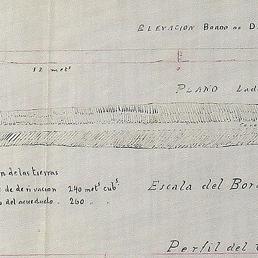 ELEVACION BORDO DE D
12 mets
PLANO Lad
n de las tierras
e de derivacion 240 mets cubs.
o del acueducto. 260 " .
Escala del Bord
Perfil del